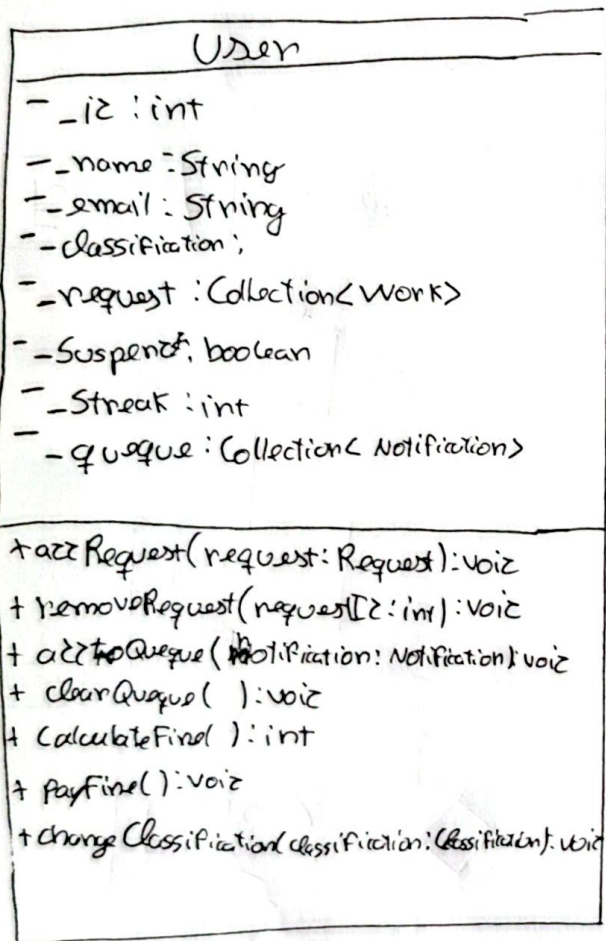 User
- _id : int
- _name : String
- _email : String
- _classification :
- _request : Collection<Work>
- _Suspend : boolean
- _Streak : int
- _queque : Collection< Notification>
+ addRequest(request: Request): void
+ removeRequest(requestId: int): void
+ addtoQueque(notification: Notification): void
+ clearQueque( ): void
+ CalculateFine( ): int
+ payFine(): void
+ changeClassification(classification: Classification): void